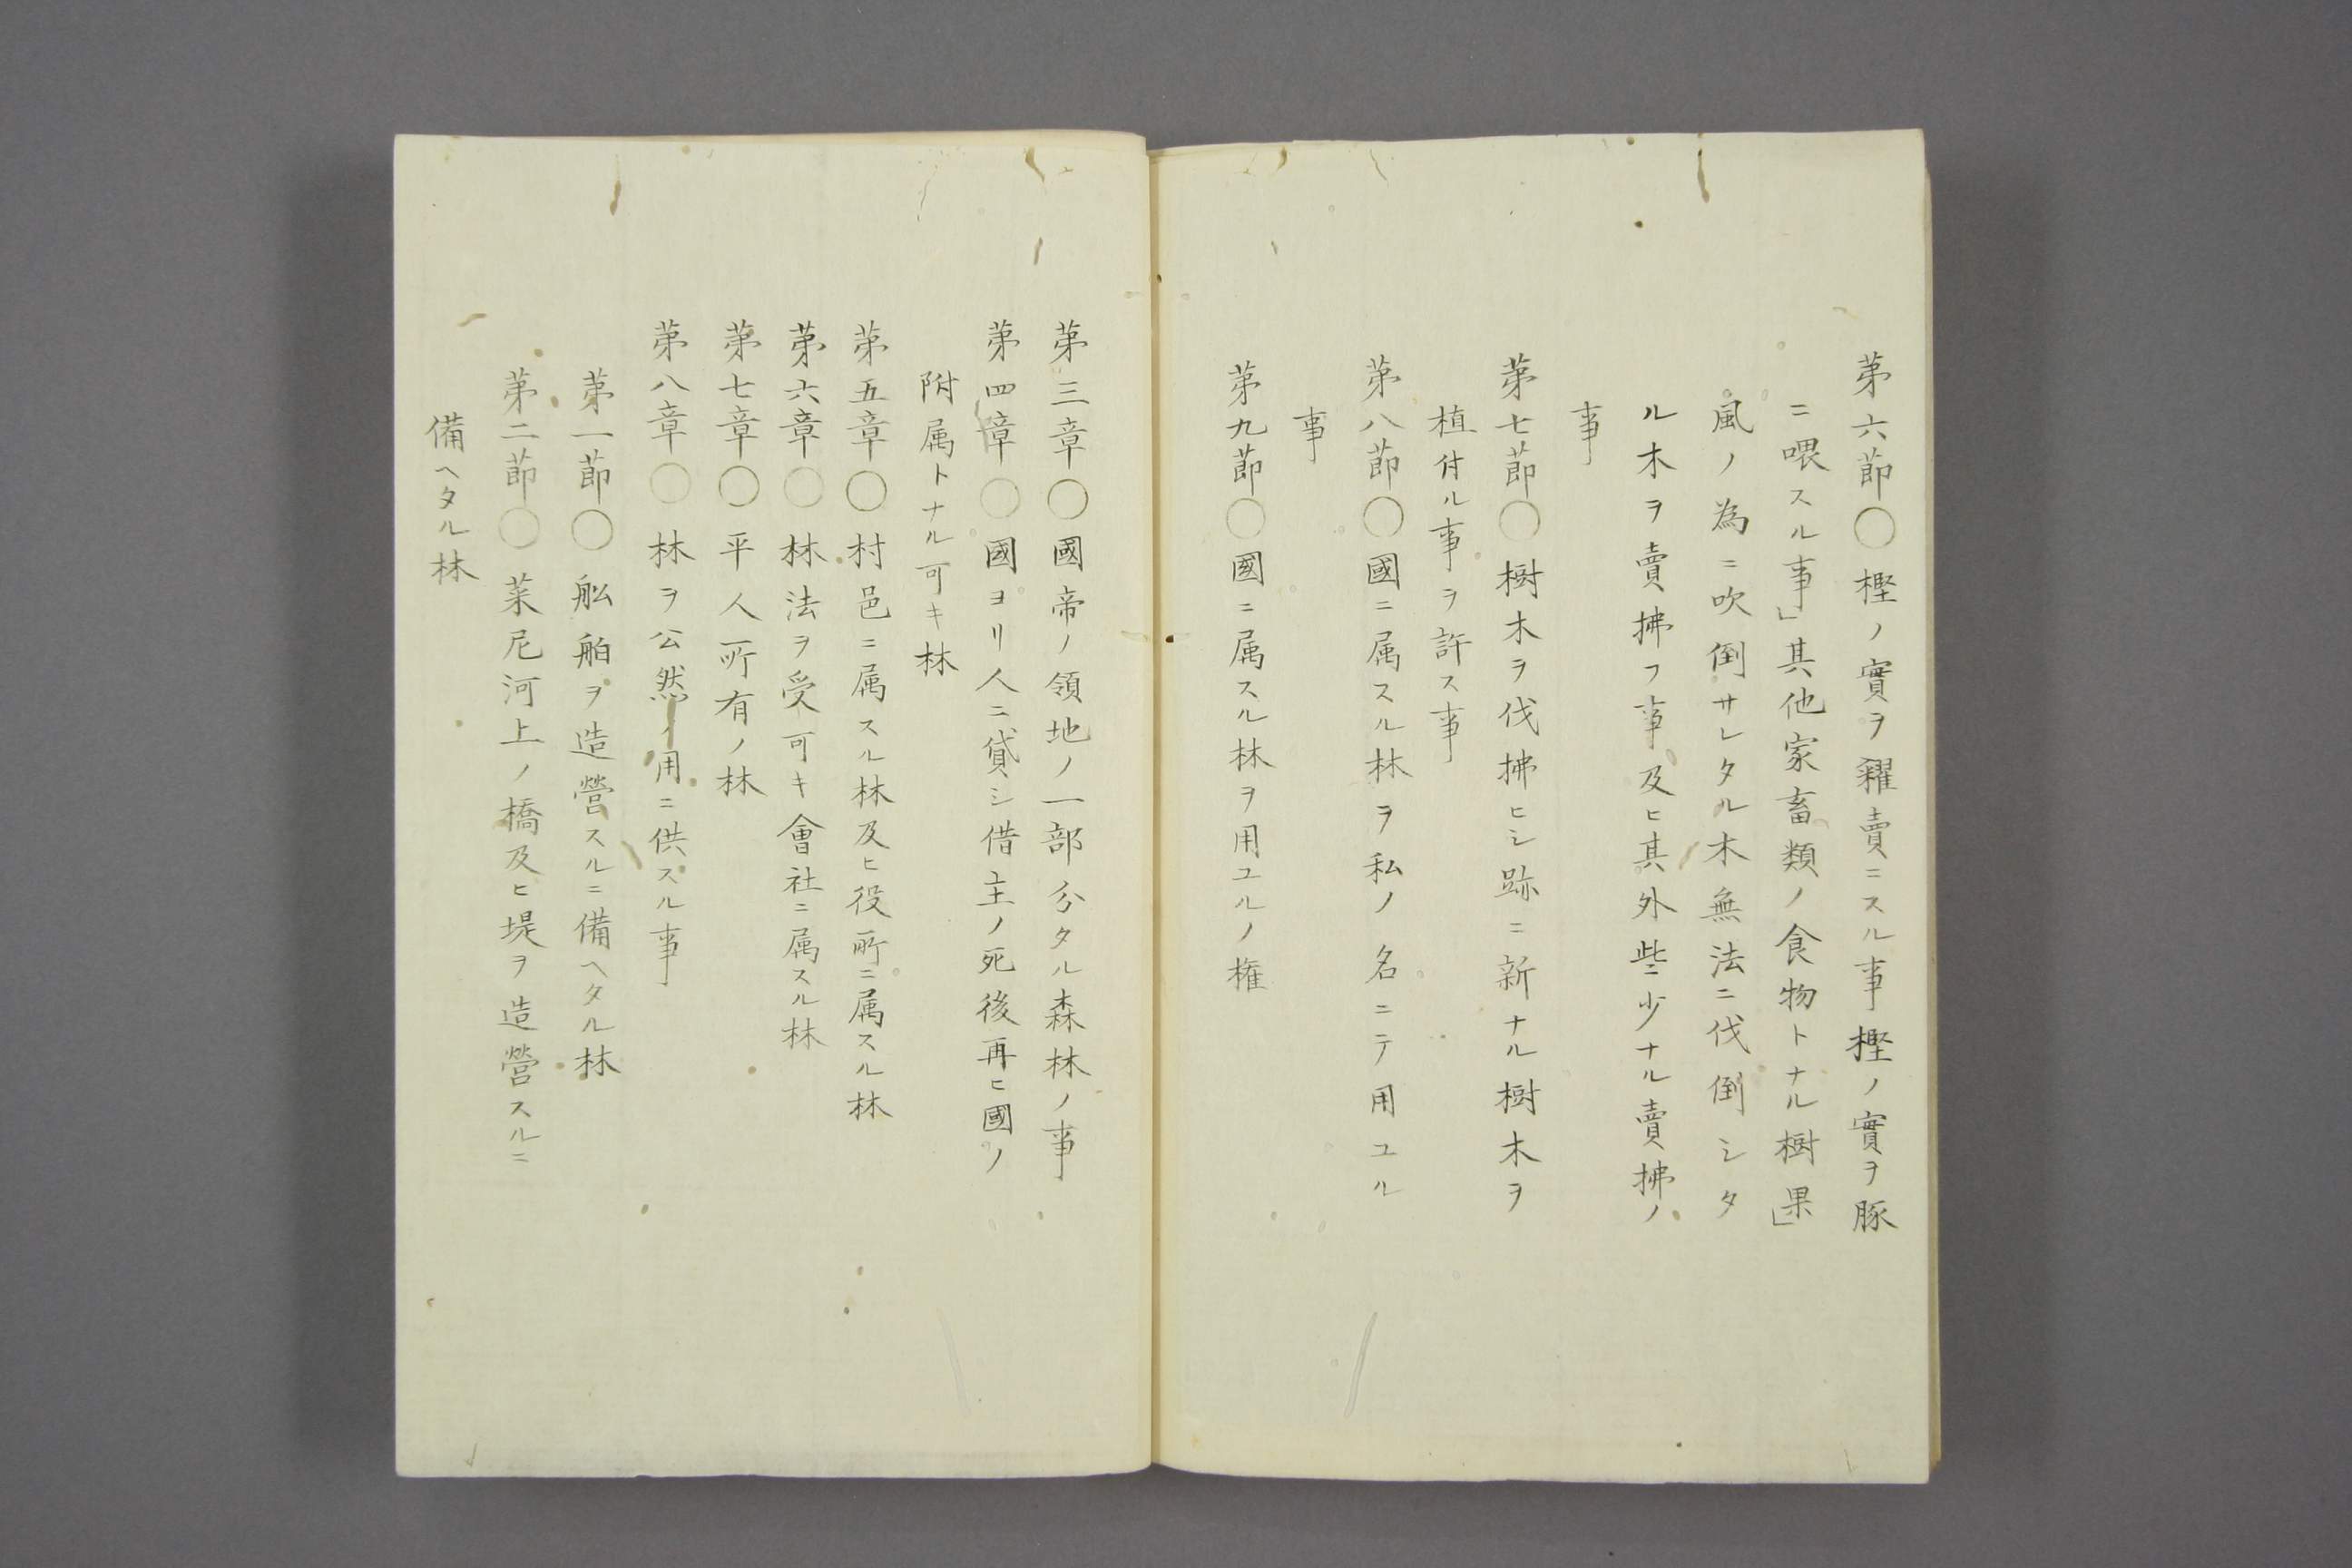 第六節〇樫ノ實ヲ糶賣ニスル事樫ノ實ヲ豚
ニ喂スル事」其他家畜類ノ食物トナル樹果」
風ノ為ニ吹倒サレタル木無法ニ伐倒シタ
ル木ヲ賣拂フ事及ヒ其外些少ナル賣拂ノ
事
第七節〇樹木ヲ伐拂ヒシ跡ニ新ナル樹木ヲ
植付ル事ヲ許ス事
第八節〇國ニ属スル林ヲ私ノ名ニテ用ユル
事
第九節〇國ニ属スル林ヲ用ユルノ権
第三章〇國帝ノ領地ノ一部分タル森林ノ事
第四章〇國ヨリ人ニ貸シ借主ノ死後再ヒ國ノ
附属トナル可キ林
第五章〇村邑ニ属スル林及ヒ役所ニ属スル林
第六章〇林法ヲ受可キ會社ニ属スル林
第七章〇平人所有ノ林
第八章〇林ヲ公然ノ用ニ供スル事
第一節〇舩舶ヲ造營スルニ備ヘタル林
第二節〇莱尼河上ノ橋及ヒ堤ヲ造營スルニ
備ヘタル林